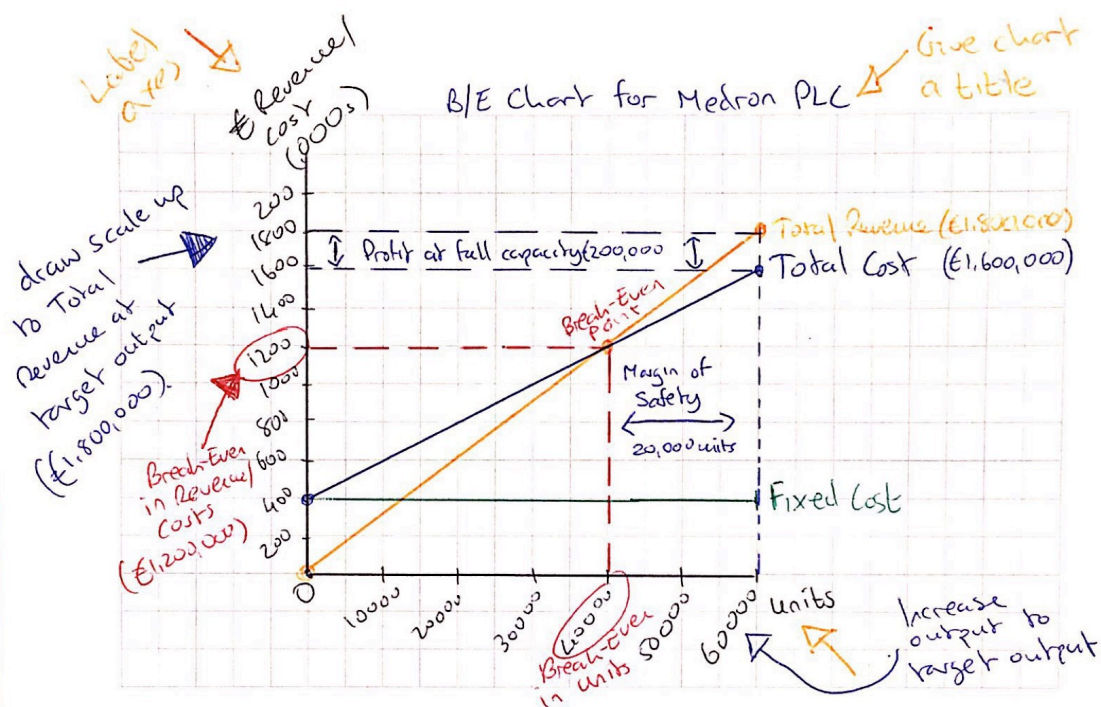 Label
axes
€ Revenue/
cost
(,000s)
B/E Chart for Medron PLC
Give chart
a title
draw scale up
to Total
Revenue at
target output
(€1,800,000).
200
1800
1600
1400
1200
1000
800
600
400
200
0
Profit at full capacity €200,000
Total Revenue (€1,800,000)
Total Cost (€1,600,000)
Break-Even
point
Margin of
Safety
20,000 units
Break-Even
in Revenue/
Costs
(€1,200,000)
Fixed Cost
10000
20000
30000
40000
50000
60000
units
Break-Even
in units
Increase
output to
target output